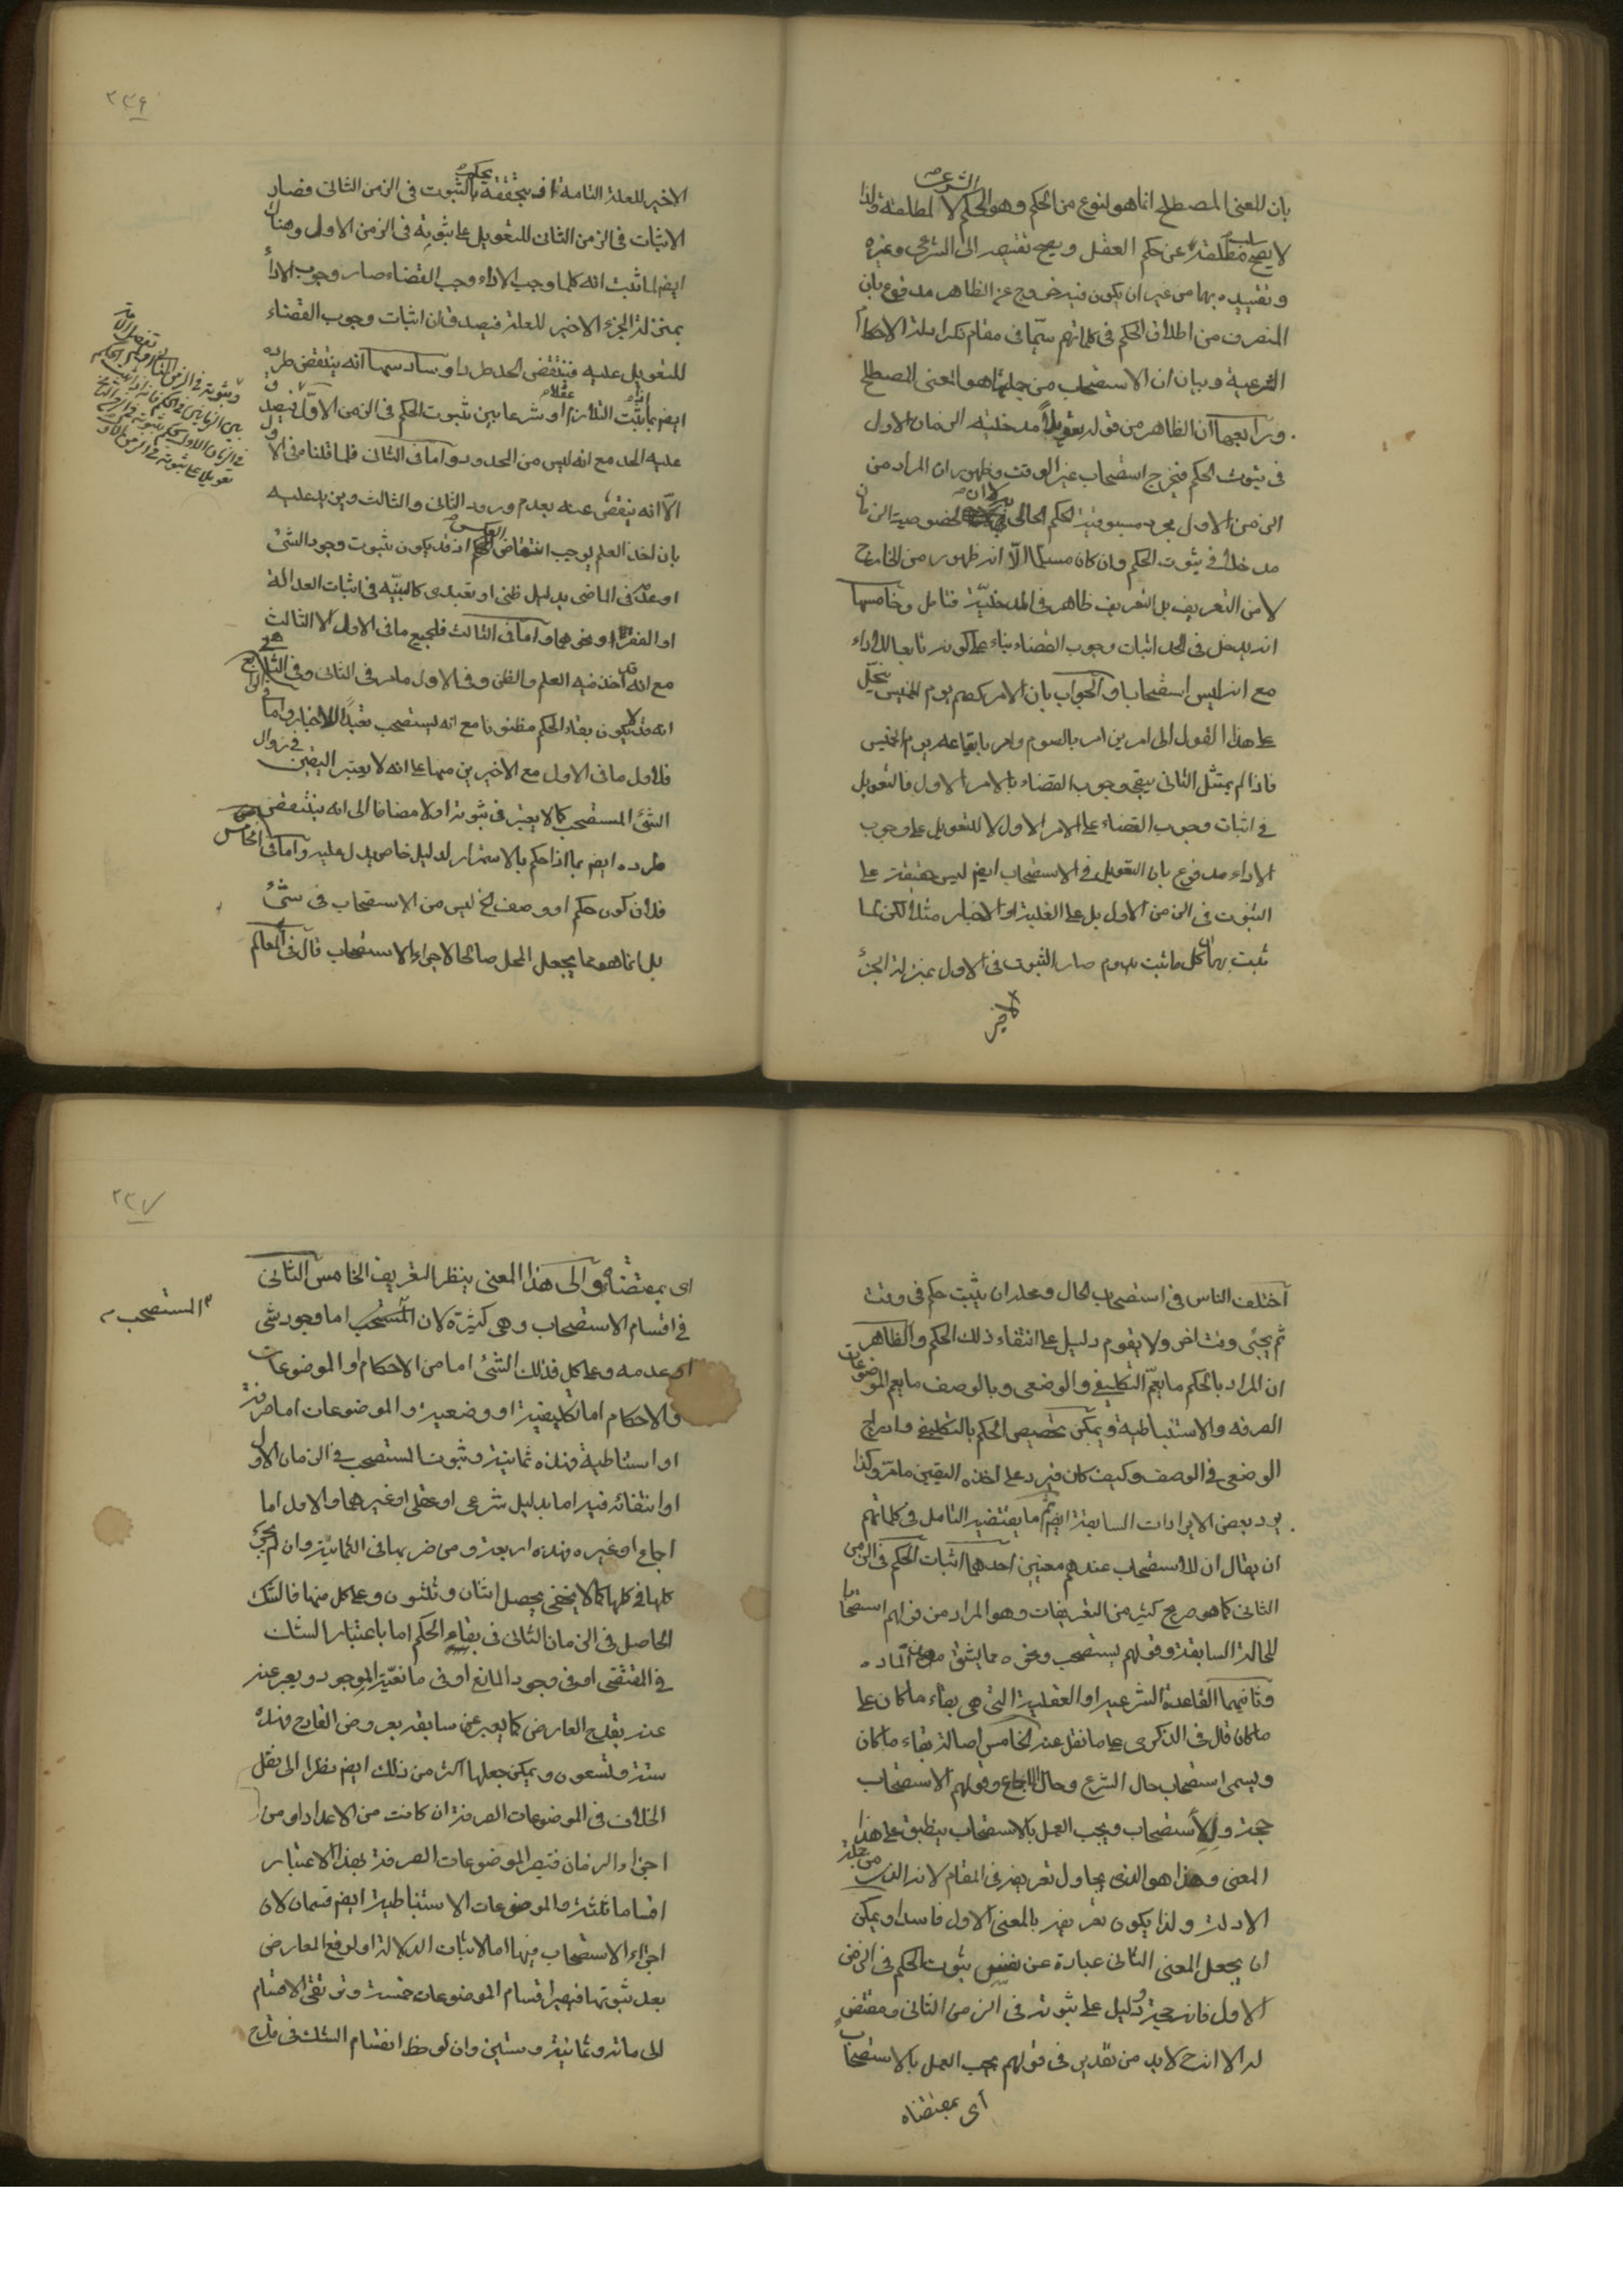 بان للمعنى المصطلح انما هو لنوع من الحكم وهو الحكم الشرعى لا لمطلقه ولذا
لا يصح سلب مطلقه عن حكم العقل ويصح تقسيمه الى الشرعى وغيره
وتقييده بهما من غير ان يكون فيه خروج عن الظاهر مدفوع بان
المنصرف من اطلاق الحكم فى كلماتهم سيّما فى مقام ذكر ادلة الاحكام
الشرعية وبيان ان الاستصحاب من جملتها هو المعنى المصطلح
ورابعها ان الظاهر من قوله تعويلاً مدخليّة الزمان الاول
فى ثبوت الحكم فيخرج استصحاب غير الوقت وظهور ان المراد من
الزمن الاول مجرد مسبوقية الحكم الحالى به لا ان لخصوصية الزمان
مدخلا فى ثبوت الحكم وان كان مسلما الّا انه ظهور من الخارج
لا من التعريف بل التعريف ظاهر فى المدخليّة فتامل وخامسها
انه يدخل فى الحد اثبات وجوب القضاء بناء على كونه تابعا للاداء
مع انه ليس استصحابا والجواب بان الامر كصم يوم الخميس ينحلّ
على هذا القول الى امرين امر بالصوم وامر بايقاعه يوم الخميس
فاذا لم يمتثل الثانى يبقى وجوب القضاء بالامر الاول فالتعويل
فى اثبات وجوب القضاء على الامر الاول لا للتعويل على وجوب
الاداء مدفوع بان التعويل فى الاستصحاب ايضا ليس حقيقة على
الثبوت فى الزمن الاول بل على الغلبة او الاخبار مثلا لكن لما
ثبت بهما ان كل ما ثبت يدوم صار الثبوت فى الاول بمنزلة الجزء
الاخير
٢٣٦
الاخير للعلة التامة اذ بتحققه يحكم بالثبوت فى الزمن الثانى فصار
الاثبات فى الزمن الثانى للتعويل على ثبوته فى الزمن الاول وهنا
ايضا لما ثبت انه كلما وجب الاداء وجب القضاء صار وجوب الاداء
بمنزلة الجزء الاخير للعلة فيصدق ان اثبات وجوب القضاء
للتعويل عليه فينتقض الحد طردا وسادسها انه ينتقض طرده
ايضا بما ثبت التلازم عقلا او شرعا بين ثبوت الحكم فى الزمن الاوّل فيصدق
عليه الحد مع انه ليس من المحدود واما فى الثانى فلما قلنا فى الاول
الّا انه ينقص عنه بعدم ورود الثانى والثالث ويزيد عليه
بان اخذ العلم يوجب انتقاض العكس اذ قد يكون ثبوت وجود الشئ
او عدمه فى الماضى بدليل ظنى او تعبدى كالبيّنه فى اثبات العدالة
او الفقر او نحوهما واما فى الثالث فلجميع ما فى الاول الا الثالث
مع انه قد اخذ فيه العلم والظن وفى الاول ما مر فى الثانى وفى
انه قد لا يكون بقاء الحكم مظنونا مع انه يستصحب تعبدا للاخبار واما فى الرابع
فلاول ما فى الاول مع الاخيرين منهما على انه لا يعتبر اليقين فى زوال
الشئ المستصحب كما لا يعتبر فى ثبوته اولا مضافا الى انه ينتقض
طرده ايضا بما اذا حكم بالاستمرار لدليل خاص يدل عليه واما فى الخامس
فلان كون حكم او وصف الخ ليس من الاستصحاب فى شئ
بل انما هو مما يجعل المحل صالحا لاجراء الاستصحاب قال فى المعالم
اختلف الناس فى استصحاب الحال ومحله ان يثبت حكم فى وقت
ثم يجئ وقت اخر ولا يقوم دليل على انتفاء ذلك الحكم والظاهر
ان المراد بالحكم ما يعمّ التكليفى والوضعى وبالوصف ما يعم الموضوعات
الصرفه والاستنباطية ويمكن تخصيص الحكم بالتكليفى وادراج
الوضعى فى الوصف وكيف كان فيرد على اخذه اليقين ما مر وكذا
يرد بعض الايرادات السابقة ايضا ثم ما يقتضيه التامل فى كلماتهم
ان يقال ان للاستصحاب عندهم معنيين احدهما اثبات الحكم فى الزمن
الثانى كما هو صريح كثير من التعريفات وهو المراد من قولهم استصحابا
للحالة السابقة وقولهم يستصحب ونحوه مما يشتق من هذه المادّه
وثانيهما القاعدة الشرعية او العقلية التى هى بقاء ما كان على
ما كان قال فى الذكرى على ما نقل عنه الخامس اصالة بقاء ما كان
ويسمى استصحاب حال الشرع وحال الاجماع وقولهم الاستصحاب
حجة وللاستصحاب ويجب العمل بالاستصحاب ينطبق على هذا
المعنى وهذا هو الذى يحاول تعريفه فى المقام لانه الذى من جملة
الادلة ولذا يكون تعريفه بالمعنى الاول فاسدا ويمكن
ان يجعل المعنى الثانى عبارة عن نفس ثبوت الحكم فى الزمن
الاول فانه حجة ودليل على ثبوته فى الزمن الثانى ومقتض
له الا انه ح لابد من تقدير فى قولهم يجب العمل بالاستصحاب
اى بمقتضاه
٢٣٧
اى بمقتضاه والى هذا المعنى ينظر التعريف الخامس الثانى
فى اقسام الاستصحاب وهى كثيرة لان المستصحب اما وجود شئ
المستصحب
او عدمه وعلى كل فذلك الشئ اما من الاحكام او الموضوعات
والاحكام اما تكليفية او وضعية والموضوعات اما صرفة
او استنباطية فهذه ثمانية وثبوت المستصحب فى الزمان الاول
او انتفائه فيه اما بدليل شرعى او عقلى او غيرهما والاول اما
اجماع او غيره فهذه اربعة ومن ضربها فى الثمانية وان لم يجئ
كلها فى كلها كما لا يخفى يحصل اثنان وثلثون وعلى كل منها فالشك
الحاصل فى الزمان الثانى فى بقاء الحكم اما باعتبار الشك
فى المقتضى او فى وجود المانع او فى مانعيّة الموجود ويعبر عنه
عنه بقدح العارض كما يعبر عن سابقه بعروض القادح فهذه
ستة وتسعون ويمكن جعلها اكثر من ذلك ايضا نظرا الى نقل
الخلاف فى الموضوعات الصرفة ان كانت من الاعداد او من
اجزاء الزمان فتصير الموضوعات الصرفة بهذا الاعتبار
اقساما ثلثة والموضوعات الاستنباطية ايضا قسمان لان
اجراء الاستصحاب فيها اما لاثبات الدلالة او لدفع المعارض
بعد ثبوتها فيصير اقسام الموضوعات خمسة وترتقى الاقسام
الى مائة وثمانية وستين وان لوحظ انقسام الشك فى قدح